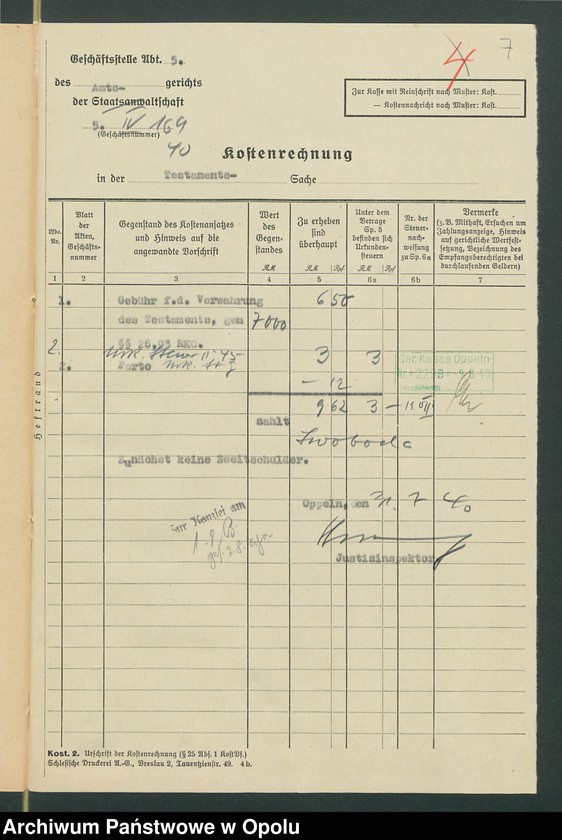 7
4
Geschäftsstelle Abt. 5.
des Amts- gerichts
der Staatsanwaltschaft
5. IV 169
(Geschäftsnummer)
40
Zur Kasse mit Reinschrift nach Muster: Kost.
— Kostennachricht nach Muster: Kost.
Kostenrechnung
in der Testaments- Sache
Lfde. Nr.
Blatt der Akten, Geschäfts-nummer
Gegenstand des Kostenansatzes und Hinweis auf die angewandte Vorschrift
Wert des Gegen-standes
RM
Zu erheben sind überhaupt
RM Rpf
Unter dem Betrage Sp. 5 befinden sich Urkunden-steuern
RM Rpf
Nr. der Steuer-nach-weisung zu Sp. 6a
Vermerke
(z. B. Mithaft, Ersuchen um Zahlungsanzeige, Hinweis auf gerichtliche Wertfest-setzung, Bezeichnung des Empfangsberechtigten bei durchlaufenden Geldern)
1 2 3 4 5 6a 6b 7
1. Gebühr f.d. Verwahrung 6 50
des Testaments, gem 7000
§§ 26,93 RKO.
2. Urk. Steuer 3 3
2. Porto Urk. St
— 12
9 62 3 —
Ger. Kasse Oppeln
zahlt
Swoboda
Zunächst keine Zweitschuldner.
Oppeln, den 31. 7 40
Zur Kanzlei am
Justizinspektor
Heftrand
Kost. 2. Urschrift der Kostenrechnung (§ 25 Abs. 1 KostVf.)
Schlesische Druckerei A.-G., Breslau 2, Tauentzienstr. 49. 4 b.
Archiwum Państwowe w Opolu